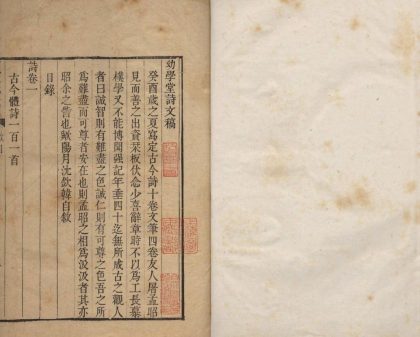 幼學堂詩文稿
癸酉歲之夏寫定古今詩十卷文筆四卷友人屠孟昭
見而善之出資栞板伏念少喜辭章時不以爲工長慕
樸學又不能博聞强記年垂四十迄無所成古之觀人
者曰誠智則有難盡之色誠仁則有可尊之色吾之所
爲難盡而可尊者安在也則孟昭之相爲汲汲者其亦
昭余之咎也歟陽月沈欽韓自敘
目錄
詩卷一
古今體詩一百一首